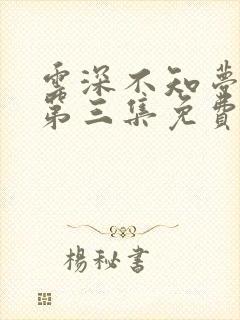 雲深不知夢
第三集免費
楊秘書